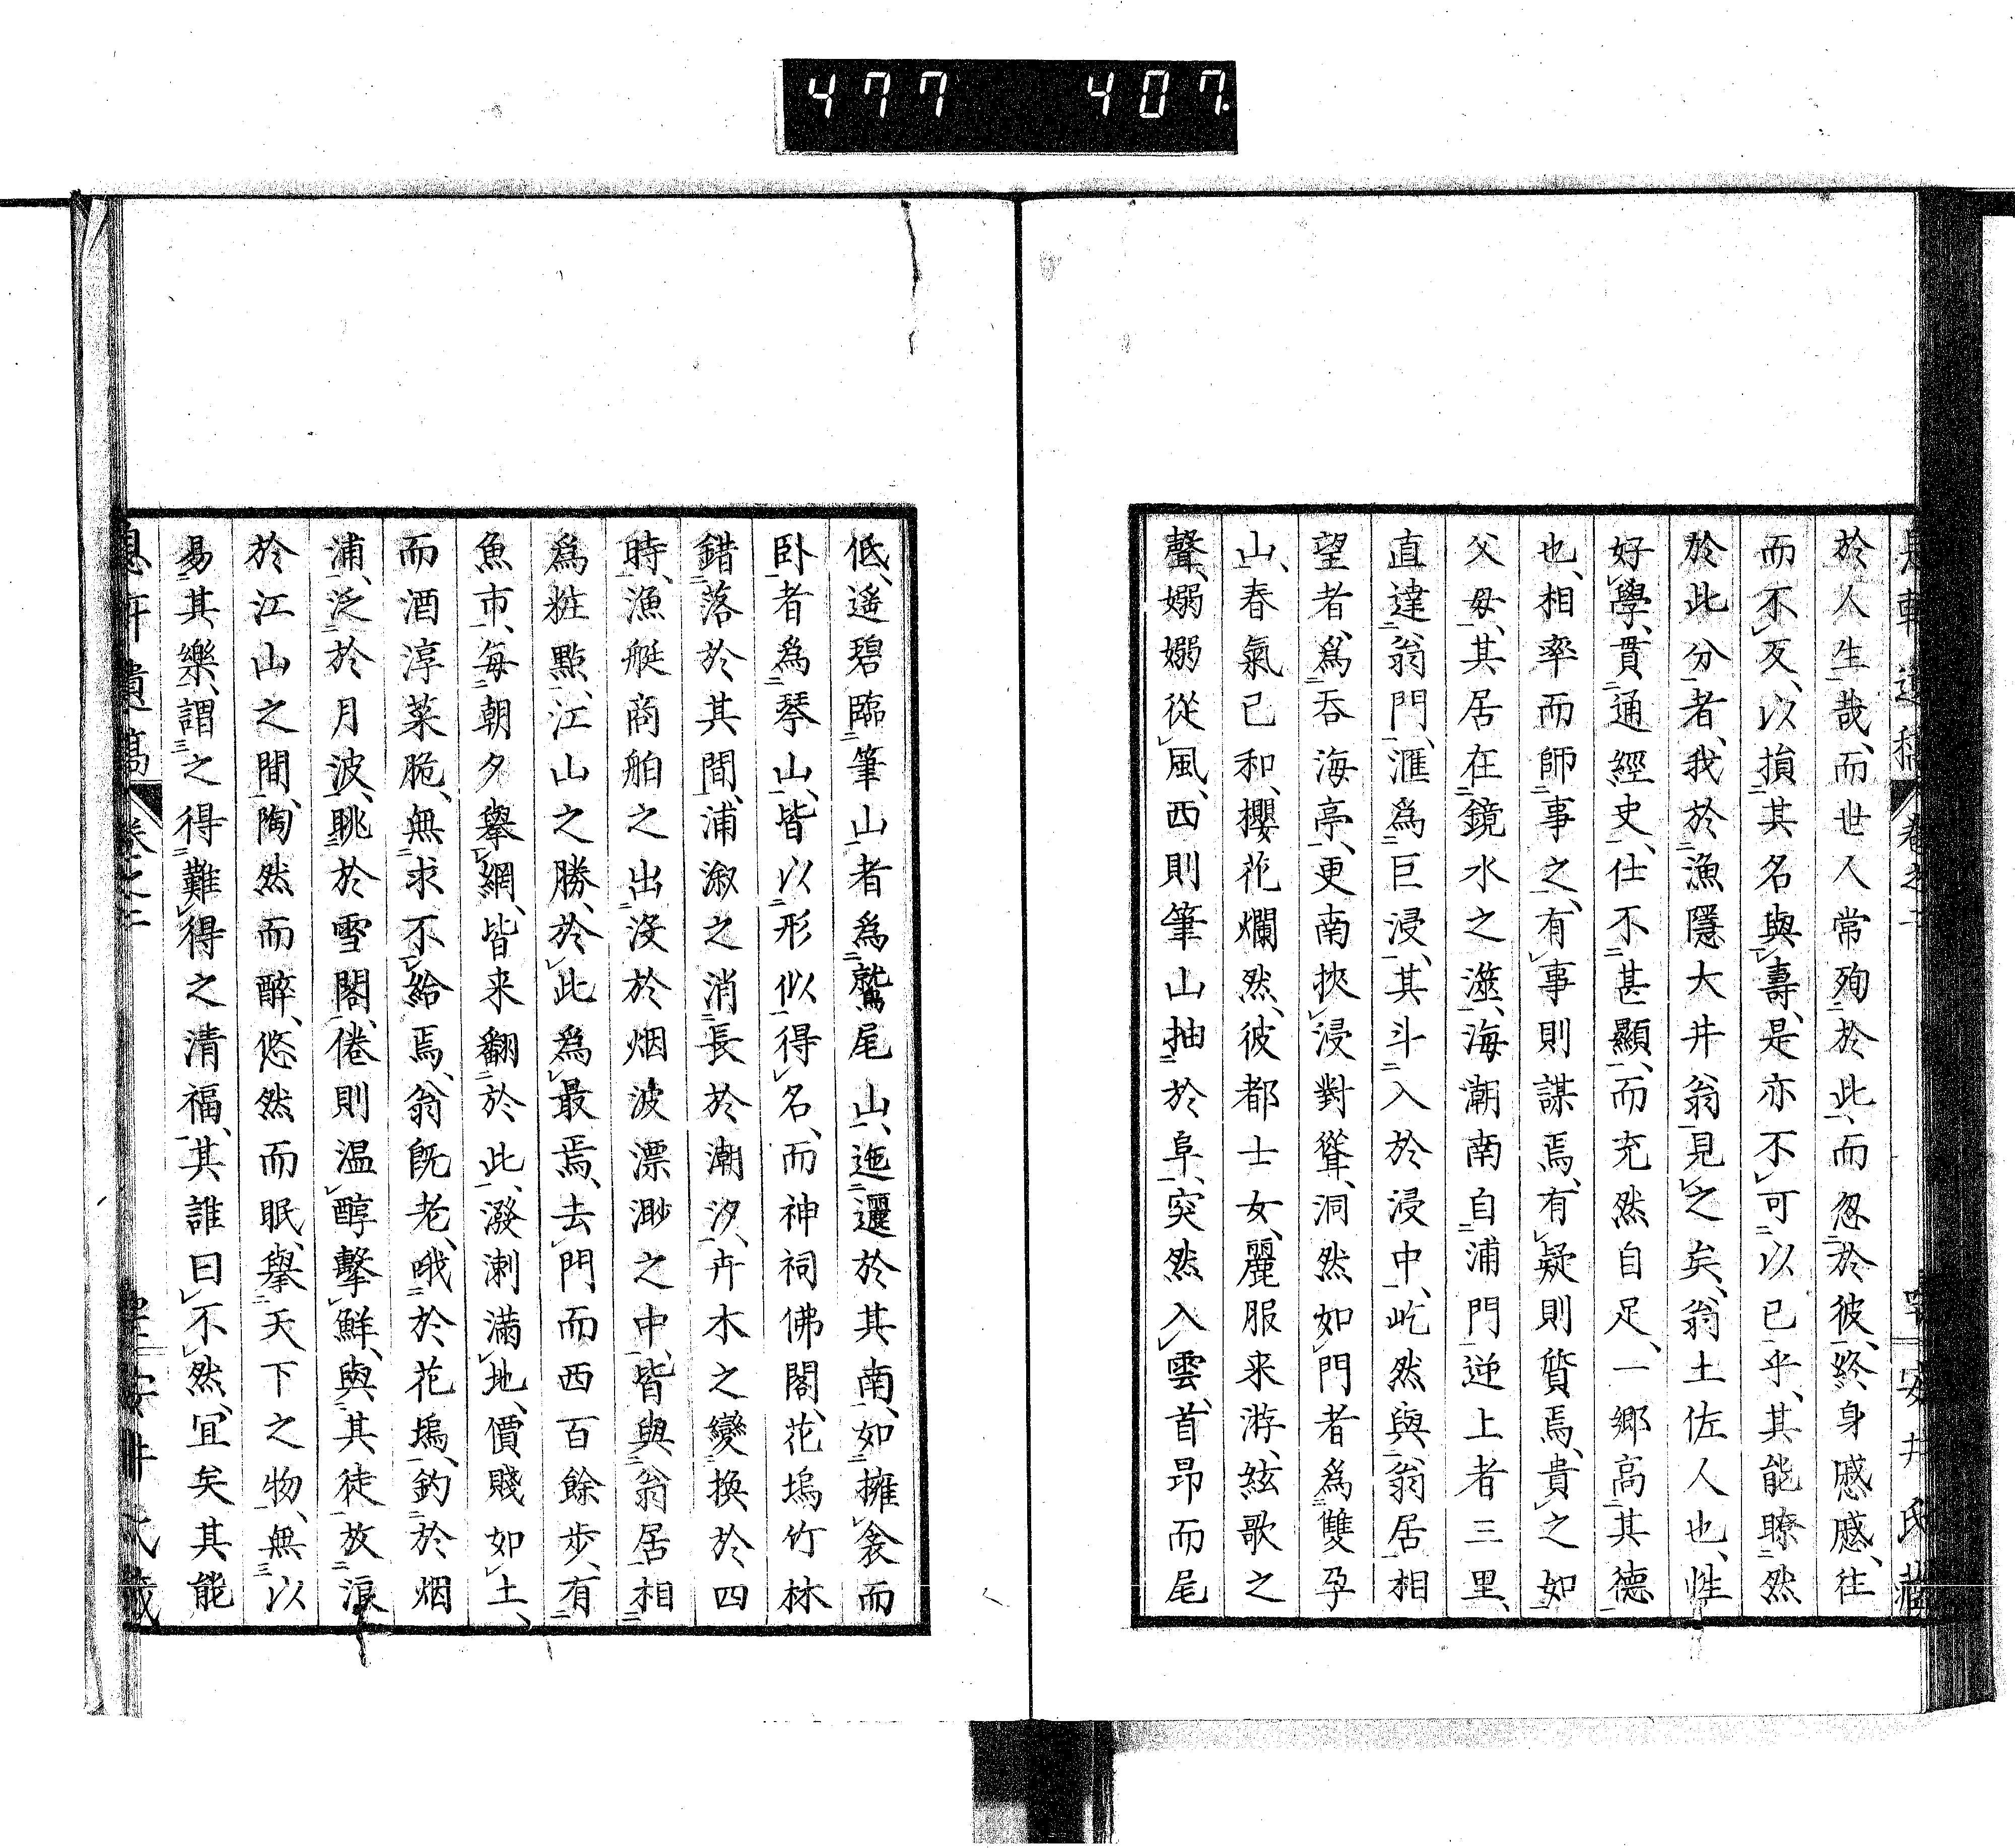 477 407
於人生哉、而世人常殉於此、而忽於彼、終身慼慼、往
而不反、以損其名與壽、是亦不可以已乎、其能瞭然
於此分者、我於漁隱大井翁見之矣、翁土佐人也、性
好學、貫通經史、仕不甚顯、而充然自足、一鄉高其德
也、相率而師事之、有事則謀焉、有疑則質焉、貴之如
父母、其居在鏡水之澨、海潮南自浦門逆上者三里、
直達翁門、滙爲巨浸、其斗入於浸中、屹然與翁居相
望者、爲吞海亭、更南挾浸對聳、洞然如門者爲雙孕
山、春氣已和、櫻花爛然、彼都士女、麗服来游、絃歌之
聲、嫋嫋從風、西則筆山抽於阜、突然入雲、首昂而尾
低、遙碧臨筆山者爲鷲尾山、迤邐於其南、如擁衾而
臥者爲琴山、皆以形似得名、而神祠佛閣、花塢竹林
錯落於其間、浦溆之消長於潮汐、卉木之變換於四
時、漁艇商舶之出沒於烟波漂渺之中、皆與翁居相
爲粧點、江山之勝、於此爲最焉、去門而西百餘步、有
魚市、每朝夕擧網、皆来翻於此、潑溂滿地、價賤如土、
而酒淳菜脆、無求不給焉、翁旣老、哦於花塢、釣於烟
浦、泛於月波、眺於雪閣、倦則温醇擊鮮、與其徒放浪
於江山之間、陶然而醉、悠然而眠、擧天下之物、無以
易其樂、謂之得難得之清福、其誰曰不然、宜矣其能
息軒遺稿 卷之二 安井氏藏